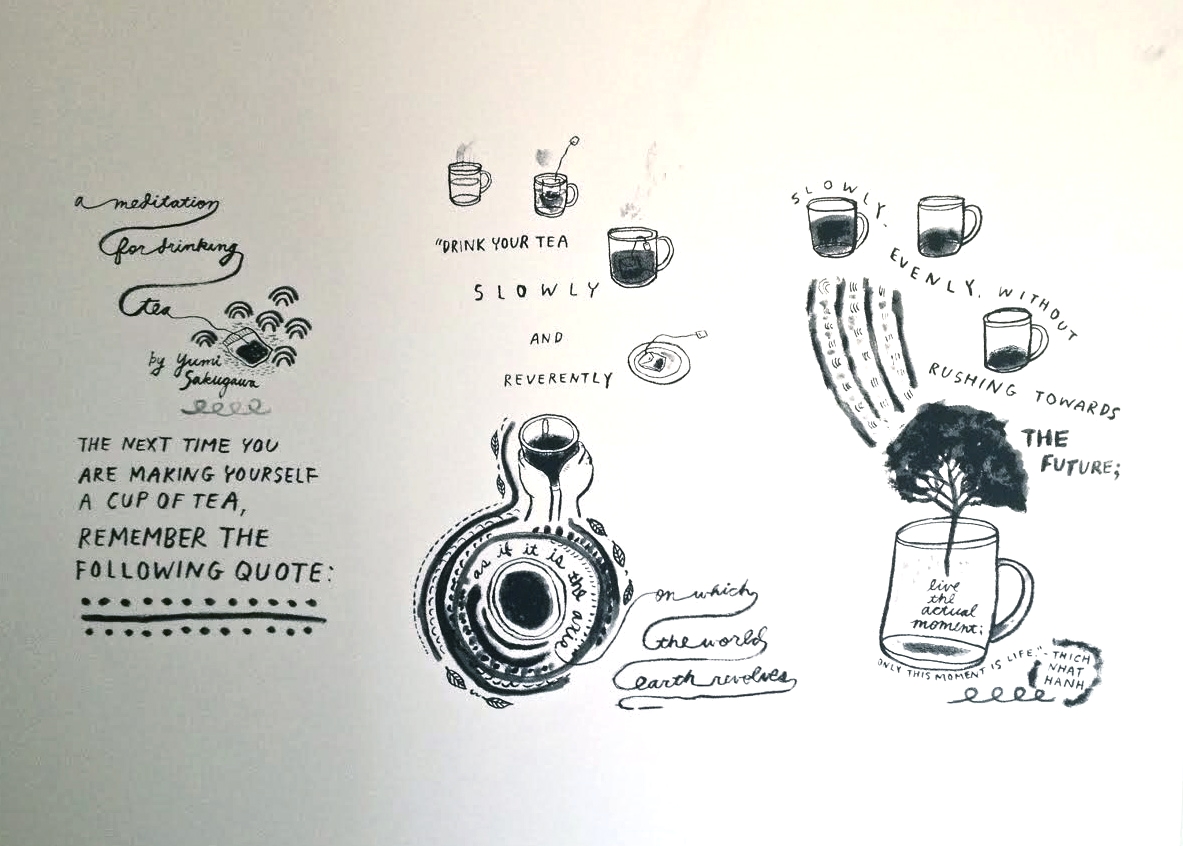 a meditation
for drinking
tea
by Yumi
Sakugawa
THE NEXT TIME YOU
ARE MAKING YOURSELF
A CUP OF TEA,
REMEMBER THE
FOLLOWING QUOTE:
"DRINK YOUR TEA
SLOWLY
AND
REVERENTLY
as if it is the axis
on which
the world
earth revolves
SLOWLY,
EVENLY, WITHOUT
RUSHING TOWARDS
THE
FUTURE;
live
the
actual
moment;
ONLY THIS MOMENT IS LIFE."
- THICH
NHAT
HANH